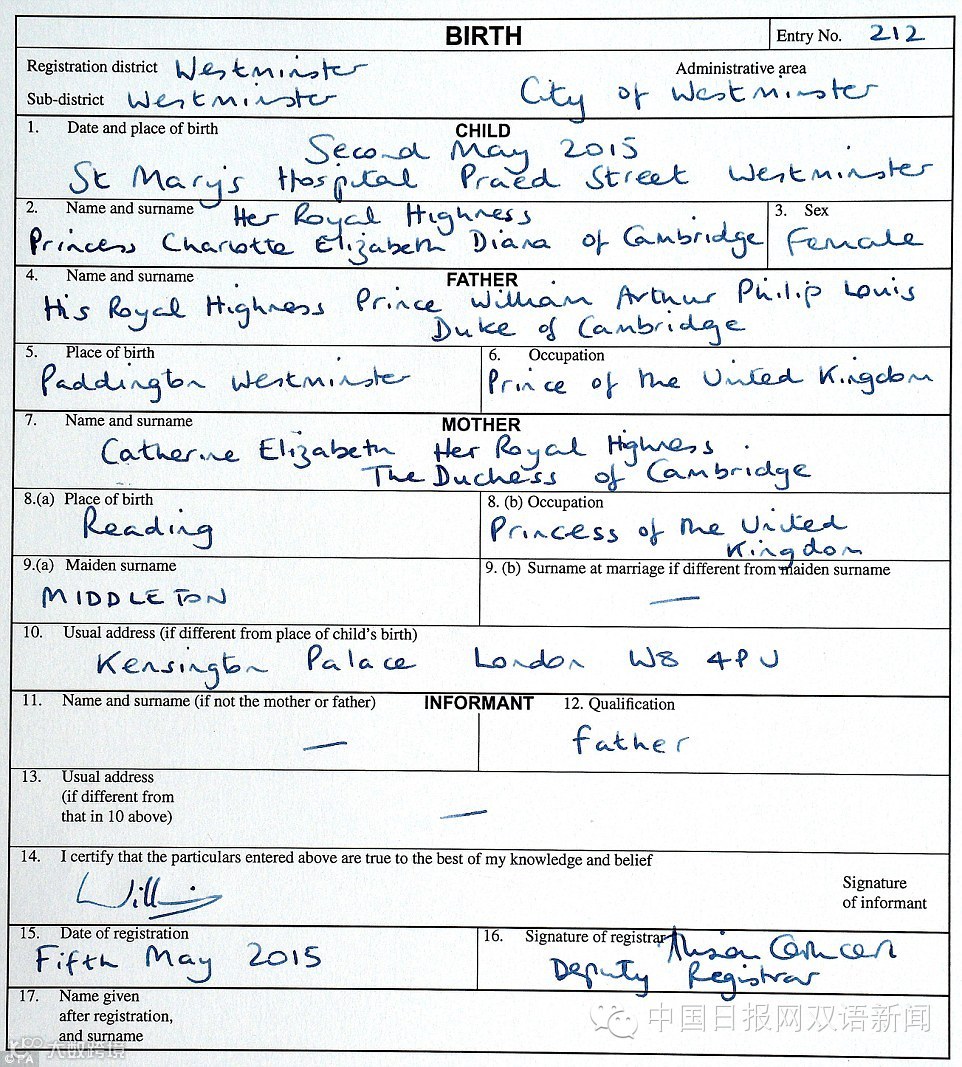 BIRTH
Entry No. 212
Registration district Westminster
Administrative area
Sub-district Westminster
City of Westminster
1. Date and place of birth
CHILD
Second May 2015
St Mary's Hospital Praed Street Westminster
2. Name and surname Her Royal Highness
3. Sex
Princess Charlotte Elizabeth Diana of Cambridge
Female
4. Name and surname
FATHER
His Royal Highness Prince William Arthur Philip Louis
Duke of Cambridge
5. Place of birth
6. Occupation
Paddington Westminster
Prince of the United Kingdom
7. Name and surname
MOTHER
Catherine Elizabeth Her Royal Highness
The Duchess of Cambridge
8.(a) Place of birth
8. (b) Occupation
Reading
Princess of the United
Kingdom
9.(a) Maiden surname
9. (b) Surname at marriage if different from maiden surname
MIDDLETON
—
10. Usual address (if different from place of child's birth)
Kensington Palace London W8 4PU
11. Name and surname (if not the mother or father)
INFORMANT
12. Qualification
—
Father
13. Usual address
(if different from
that in 10 above)
—
14. I certify that the particulars entered above are true to the best of my knowledge and belief
Signature
of informant
15. Date of registration
16. Signature of registrar
Fifth May 2015
Deputy Registrar
17. Name given
after registration,
and surname
中国日报网双语新闻
大数跨境